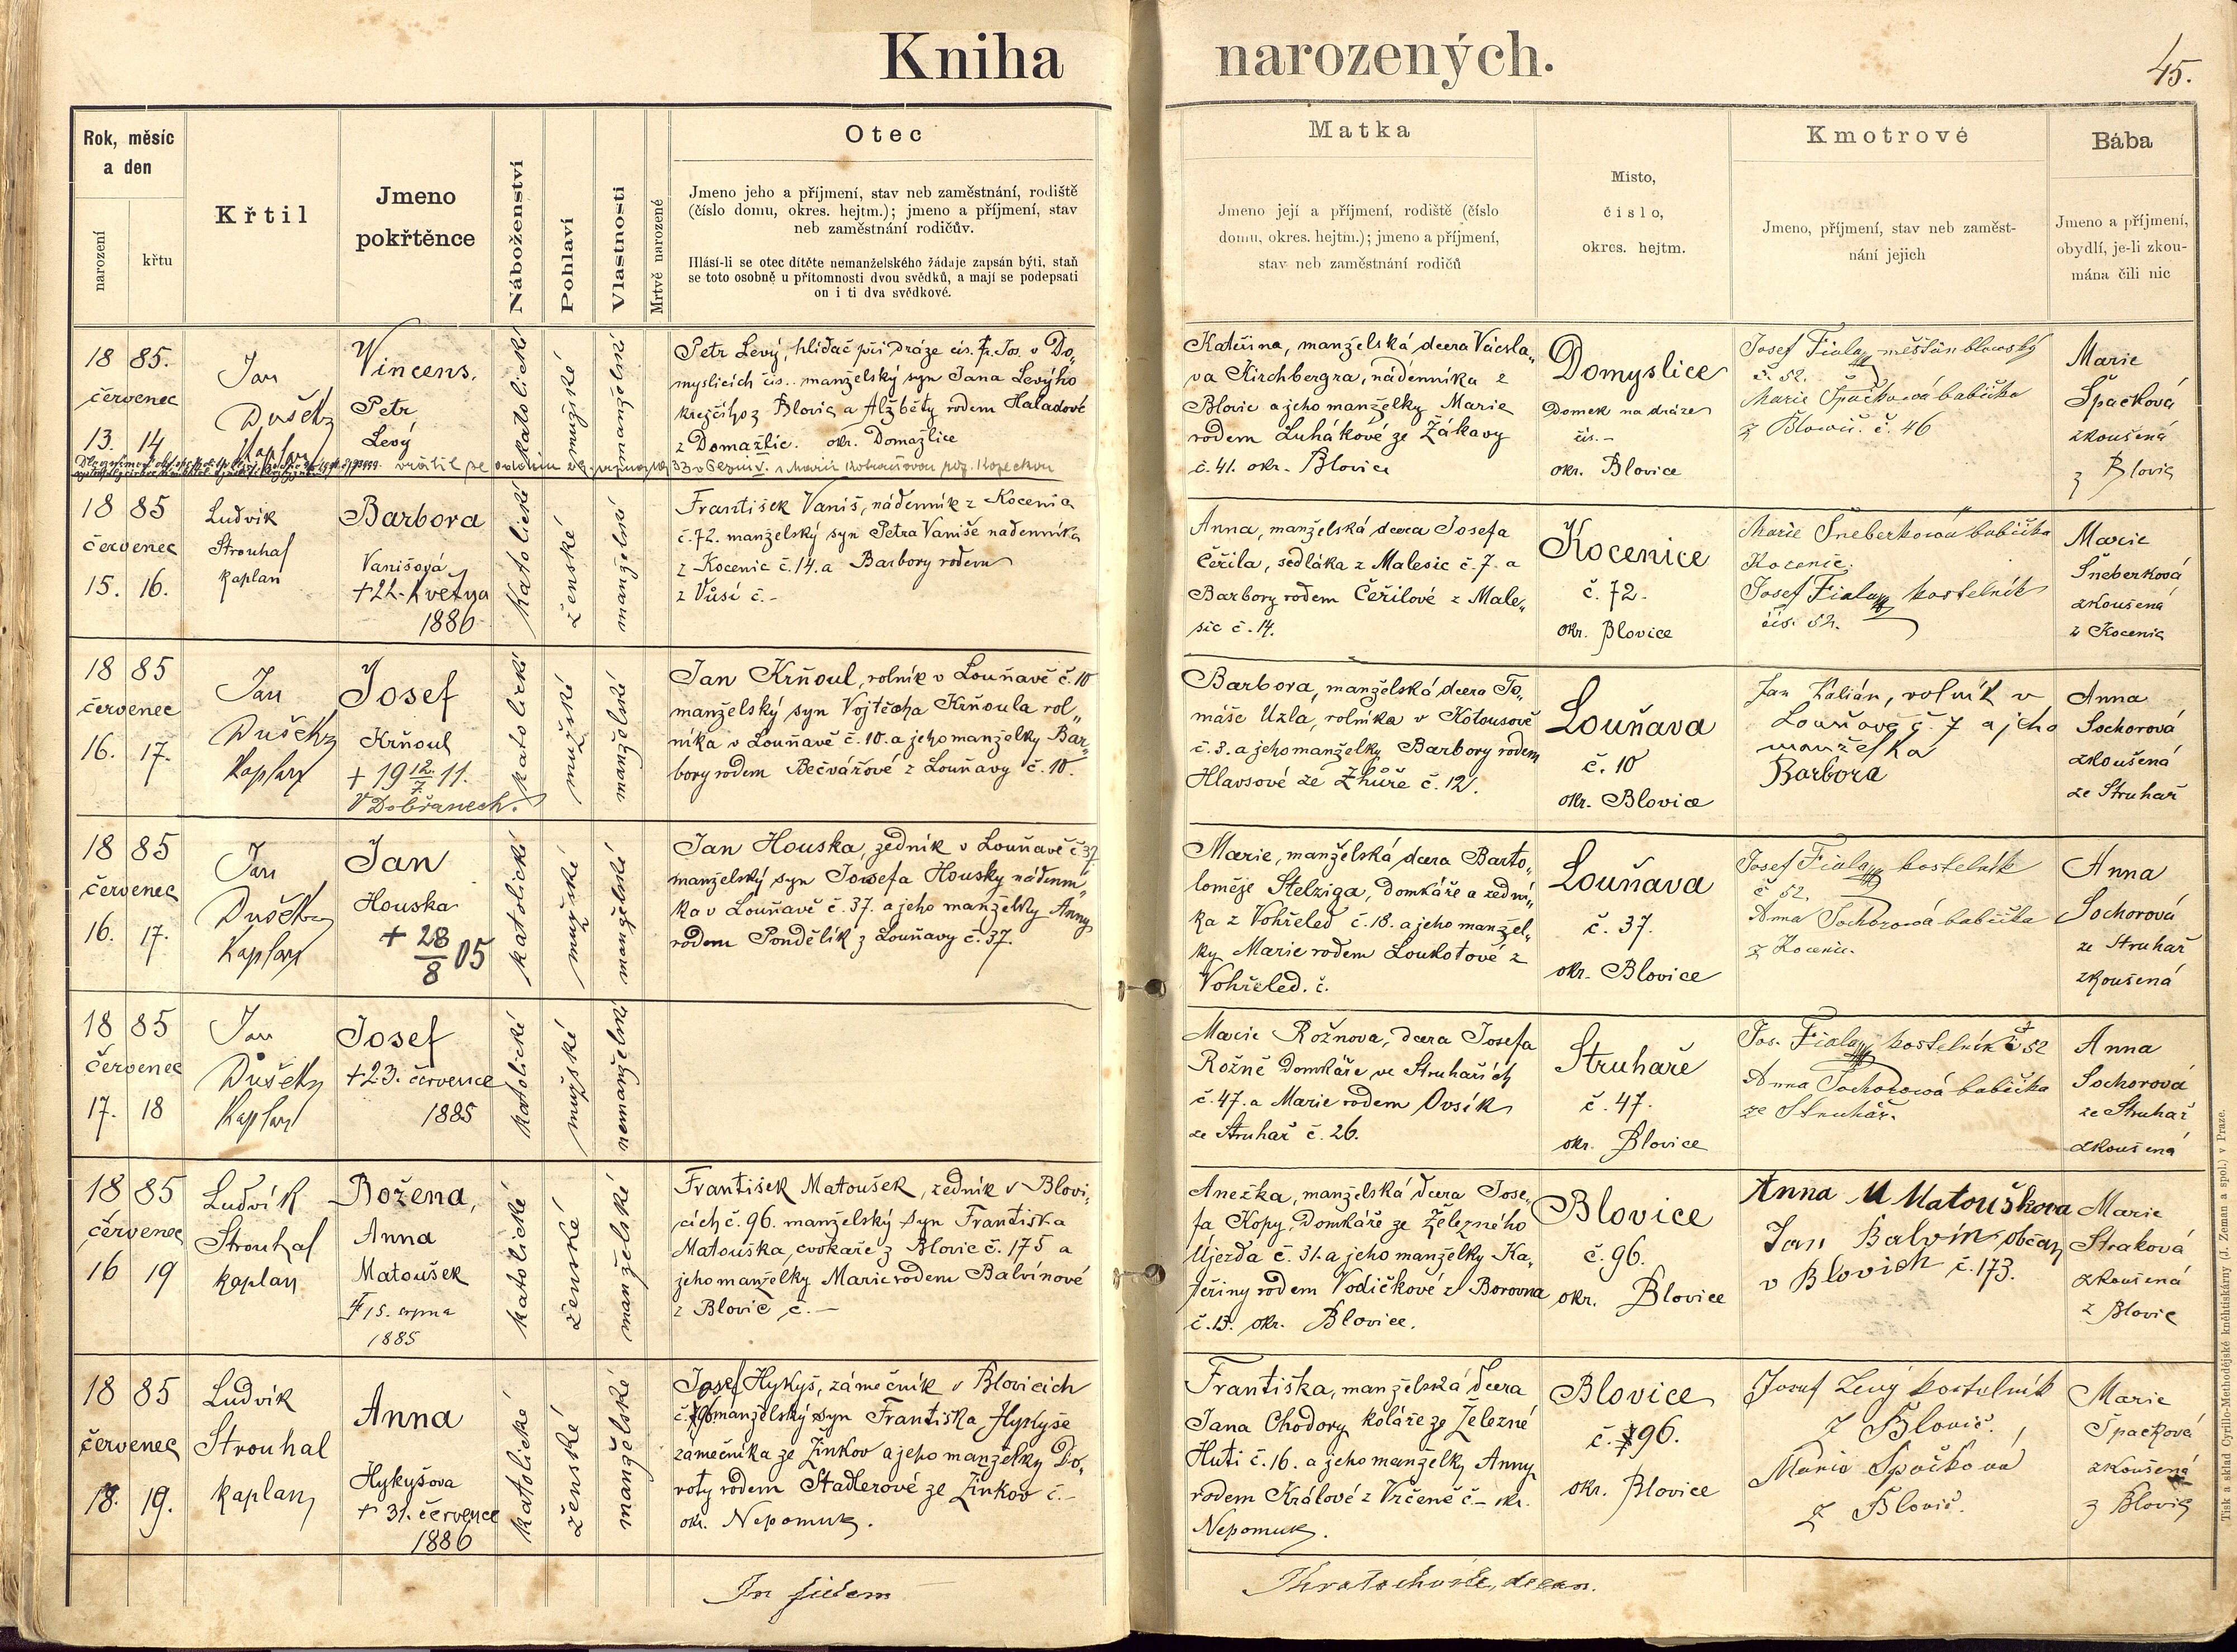 Kniha narozených.
45.
Rok, měsíc
a den
narození
křtu
Křtil
Jmeno
pokřtěnce
Náboženství
Pohlaví
Vlastnosti
Mrtvě narozené
Otec
Jmeno jeho a příjmení, stav neb zaměstnání, rodiště
(číslo domu, okres. hejtm.); jmeno a příjmení, stav
neb zaměstnání rodičův.
Hlásí-li se otec dítěte nemanželského žádaje zapsán býti, staň
se toto osobně u přítomnosti dvou svědků, a mají se podepsati
on i ti dva svědkové.
Matka
Jmeno její a příjmení, rodiště (číslo
domu, okres. hejtm.); jmeno a příjmení,
stav neb zaměstnání rodičů
Misto,
číslo,
okres. hejtm.
Kmotrové
Jmeno, příjmení, stav neb zaměst-
nání jejich
Bába
Jmeno a příjmení,
obydlí, je-li zkou-
mána čili nic
1885.
červenec
13. 14
Jan
Dušek
Kaplan
Vincens,
Petr
Levý
katolické
mužské
manželské
Petr Levý, hlídač při dráze cís. Fr. Jos. v Do„
myslicích čis.. manželský syn Jana Levýho
krejčího z Blovic a Alžběty rodem Haladové
z Domažlic. okr. Domažlice
Kateřina, manželská dcera Václa„
va Kirchbergra, nádenníka z
Blovic a jeho manželky Marie
rodem Luhákové ze Žákavy
č. 41. okr. Blovice
Domyslice
Domek na dráze
čis. -
okr. Blovice
Josef Fiala, měšťan blovský
č. 52.
Marie Špačková babička
z Blovic. č. 46
Marie
Špačková
zkoušená
z Blovic
1885
červenec
15. 16.
Ludvík
Strouhal
kaplan
Barbora
Vanišová
+ 22. května
1886
katolické
ženské
manželské
František Vaniš, nádenník z Kocenic
č. 72. manželský syn Petra Vaniše nadenníka
z Kocenic č. 14. a Barbory rodem
z Vůsí č. -
Anna, manželská dcera Josefa
Čeřila, sedláka z Malesic č. 7. a
Barbory rodem Čeřilové z Male„
sic č. 14.
Kocenice
č. 72.
okr. Blovice
Marie Šneberková babička
Kocenic.
Josef Fiala kostelník
čís. 52.
Marie
Šneberková
zkoušená
z Kocenic
1885
červenec
16. 17.
Jan
Dušek
Kaplan
Josef
Krňoul
+ 19 12/7 11.
V Dobřanech.
katolické
mužské
manželské
Jan Krňoul, rolník v Louňavě č. 10
manželský syn Vojtěcha Krňoula rol„
níka v Louňavě č. 10. a jeho manželky Bar„
bory rodem Bečvářové z Louňavy č. 10.
Barbora, manželská dcera To„
máše Uzla, rolníka v Kotousově
č. 3. a jeho manželky Barbory rodem
Hlavsové ze Zhůře č. 12.
Louňava
č. 10
okr. Blovice
Jan Kalián, rolník v
Louňavě č. 7 a jeho
manželka
Barbora
Anna
Sochorová
zkoušená
ze Struhař
1885
červenec
16. 17.
Jan
Dušek
Kaplan
Jan
Houska
+ 28/8 05
katolické
mužské
manželské
Jan Houska, zedník v Louňavě č 37
manželský syn Josefa Housky nádenní„
ka v Louňavě č. 37. a jeho manželky Anny
rodem Pondělík z Louňavy č. 37.
Marie, manželská dcera Barto„
loměje Stelziga, domkáře a zední„
ka z Vohřeled č. 18. a jeho manžel„
ky Marie rodem Loukotové z
Vohřeled. č.
Louňava
č. 37.
okr. Blovice
Josef Fiala kostelník
č 52.
Anna Sochorová babička
z Kocenic.
Anna
Sochorová
ze Struhař
zkoušená
1885
červenec
17. 18
Jan
Dušek
Kaplan
Josef
+ 23. července
1885
katolické
mužské
nemanželské
Marie Rožnova, dcera Josefa
Rožně domkáře ve Struhařích
č. 47. a Marie rodem Ovsík
ze Struhař č. 26.
Struhaře
č. 47.
okr. Blovice
Jos. Fiala kostelník č 52
Anna Sochorová babička
ze Struhář.
Anna
Sochorová
ze Struhař
zkoušená
1885
červenec
16 19
Ludvík
Strouhal
kaplan
Božena,
Anna
Matoušek
+ 15. srpna
1885
katolické
ženské
manželské
František Matoušek, zedník v Blovi„
cích č. 96. manželský syn Františka
Matouška, cvokaře z Blovic č. 175 a
jeho manželky Marie rodem Balvínové
z Blovic č. —
Anežka, manželská dcera Jose„
fa Kopy, domkáře ze Železného
Újezda č. 31. a jeho manželky Ka„
teřiny rodem Vodičkové z Borovna
č. 15. okr. Blovice.
Blovice
č. 96.
okr. Blovice
Anna M Matouškova
Jan Balvín občan
v Blovich č. 173.
Marie
Straková
zkoušená
z Blovic
1885
červenec
18. 19.
Ludvík
Strouhal
kaplan
Anna
Hykyšova
+ 31. července
1886
katolické
ženské
manželské
Josef Hykyš, zámečník v Blovicích
č. 96 manželský syn Františka Hykyše
zámečníka ze Žinkov a jeho manželky Do„
roty rodem Stadlerové ze Žinkov č. -
okr. Nepomuk.
Františka, manželská dcera
Jana Chodory koláře ze Železné
Huti č. 16. a jeho manželky Anny
rodem Králové z Vrčeně č - okr.
Nepomuk.
Blovice
č. 96.
okr. Blovice
Josef Levý kostelník
z Blovic.
Marie Špačková
z Blovic.
Marie
Špačková
zkoušená
z Blovic
In fidem
děcan.
Tisk a sklad Cyrillo-Methodějské kněhtiskárny (J. Zeman a spol.) v Praze.